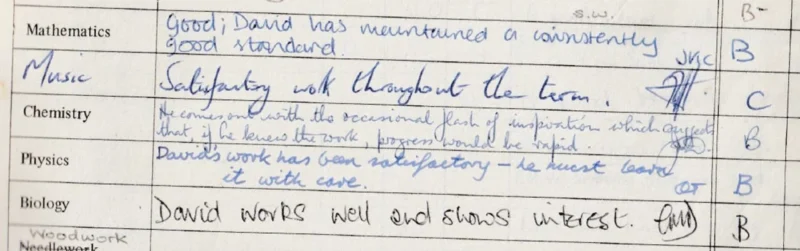 s.w. B-
Mathematics Good; David has maintained a consistently
good standard. B
Music Satisfactory work throughout the term. C
Chemistry He comes out with the occasional flash of inspiration which suggests
that, if he knew the work, progress would be rapid. B
Physics David's work has been satisfactory - he must learn
it with care. B
Biology David works well and shows interest. B
Woodwork
Needlework